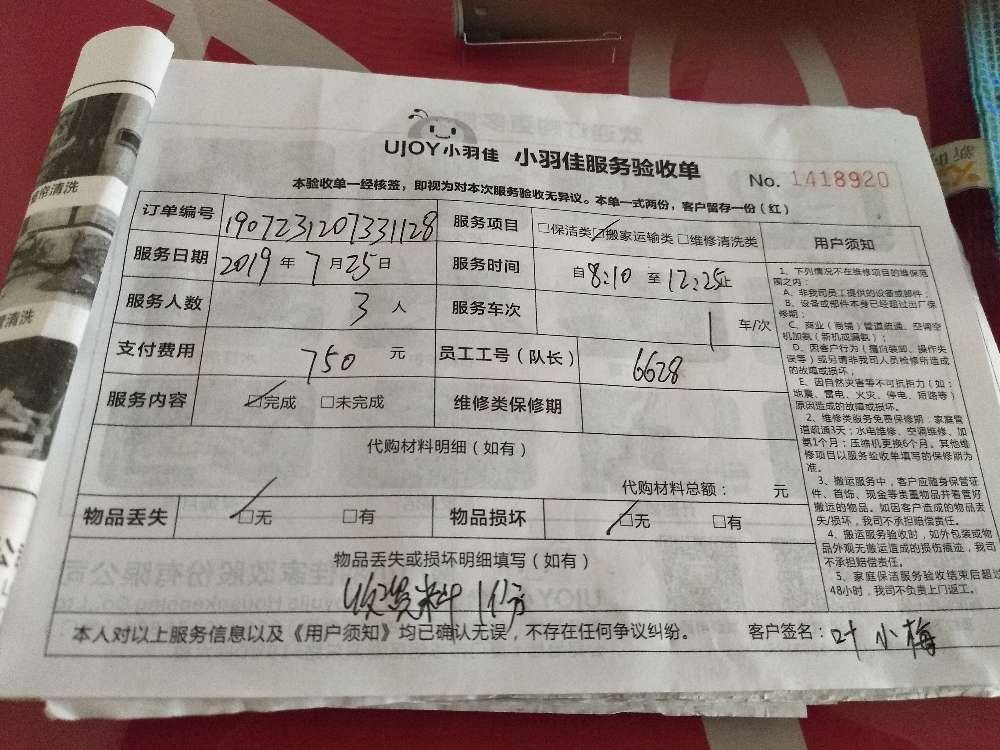 UJOY小羽佳 小羽佳服务验收单
No. 1418920
本验收单一经核签，即视为对本次服务验收无异议。本单一式两份，客户留存一份（红）
订单编号 1907231207331128 服务项目 □保洁类☑搬家运输类□维修清洗类
服务日期 2019年7月25日 服务时间 自8:10至12:25止
服务人数 3人 服务车次 1车/次
支付费用 750元 员工工号（队长） 6628
服务内容 ☑完成 □未完成 维修类保修期
代购材料明细（如有）
代购材料总额： 元
物品丢失 ☑无 □有 物品损坏 ☑无 □有
物品丢失或损坏明细填写（如有）
1份
本人对以上服务信息以及《用户须知》均已确认无误，不存在任何争议纠纷。 客户签名：叶小梅
用户须知
1、下列情况不在维修项目的维保范
围之内：
A、非我司员工提供的设备或部件；
B、设备或部件本身已经超过出厂保
修期；
C、商业（商铺）管道疏通、空调空
机加氨（新机或漏氨）；
D、因客户行为（擅自装卸、操作失
误等）或另请非我司人员检修所造成
的故障或损坏，
E、因自然灾害等不可抗拒力（如：
地震、雷电、火灾、停电、短路等）
原因造成的故障或损坏。
2、维修类服务免费保修期：家庭管
道疏通3天；水电维修、空调维修、加
氨1个月；压缩机更换6个月。其他维
修项目以服务验收单填写的保修期为
准。
3、搬运服务中，客户应随身保管证
件、首饰、现金等贵重物品并看管好
搬运的物品。如因客户造成的物品丢
失/损坏，我司不承担赔偿责任。
4、搬运服务验收时，如外包装或物
品外观无搬运造成的损伤痕迹，我司
不承担赔偿责任。
5、家庭保洁服务验收结束后超过
48小时，我司不负责上门返工。
帘清洗
清洗